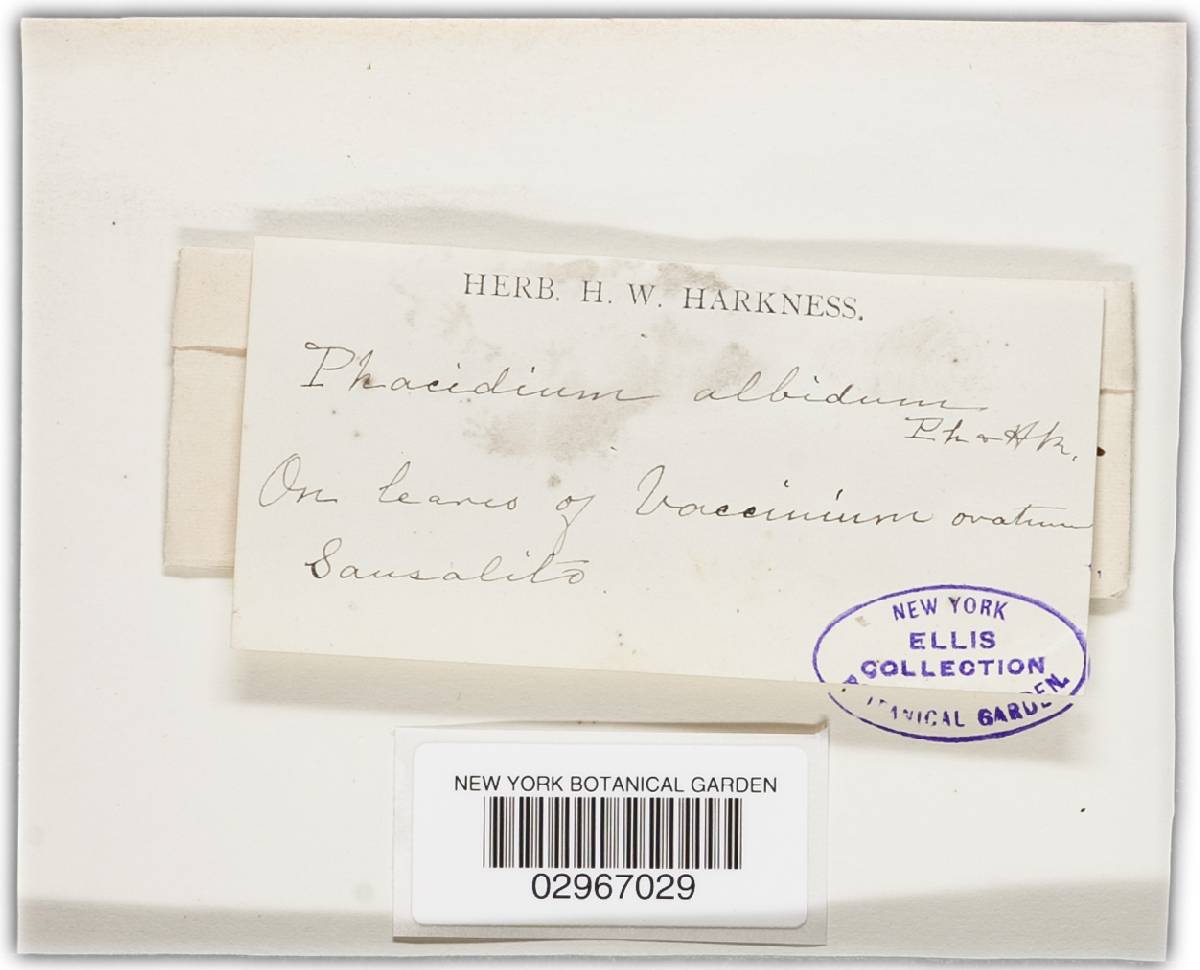 HERB. H. W. HARKNESS.
Phacidium albidum
Ph & Hk.
On leaves of Vaccinium ovatum
Sausalito
NEW YORK
ELLIS
COLLECTION
BOTANICAL GARDEN.
NEW YORK BOTANICAL GARDEN
02967029